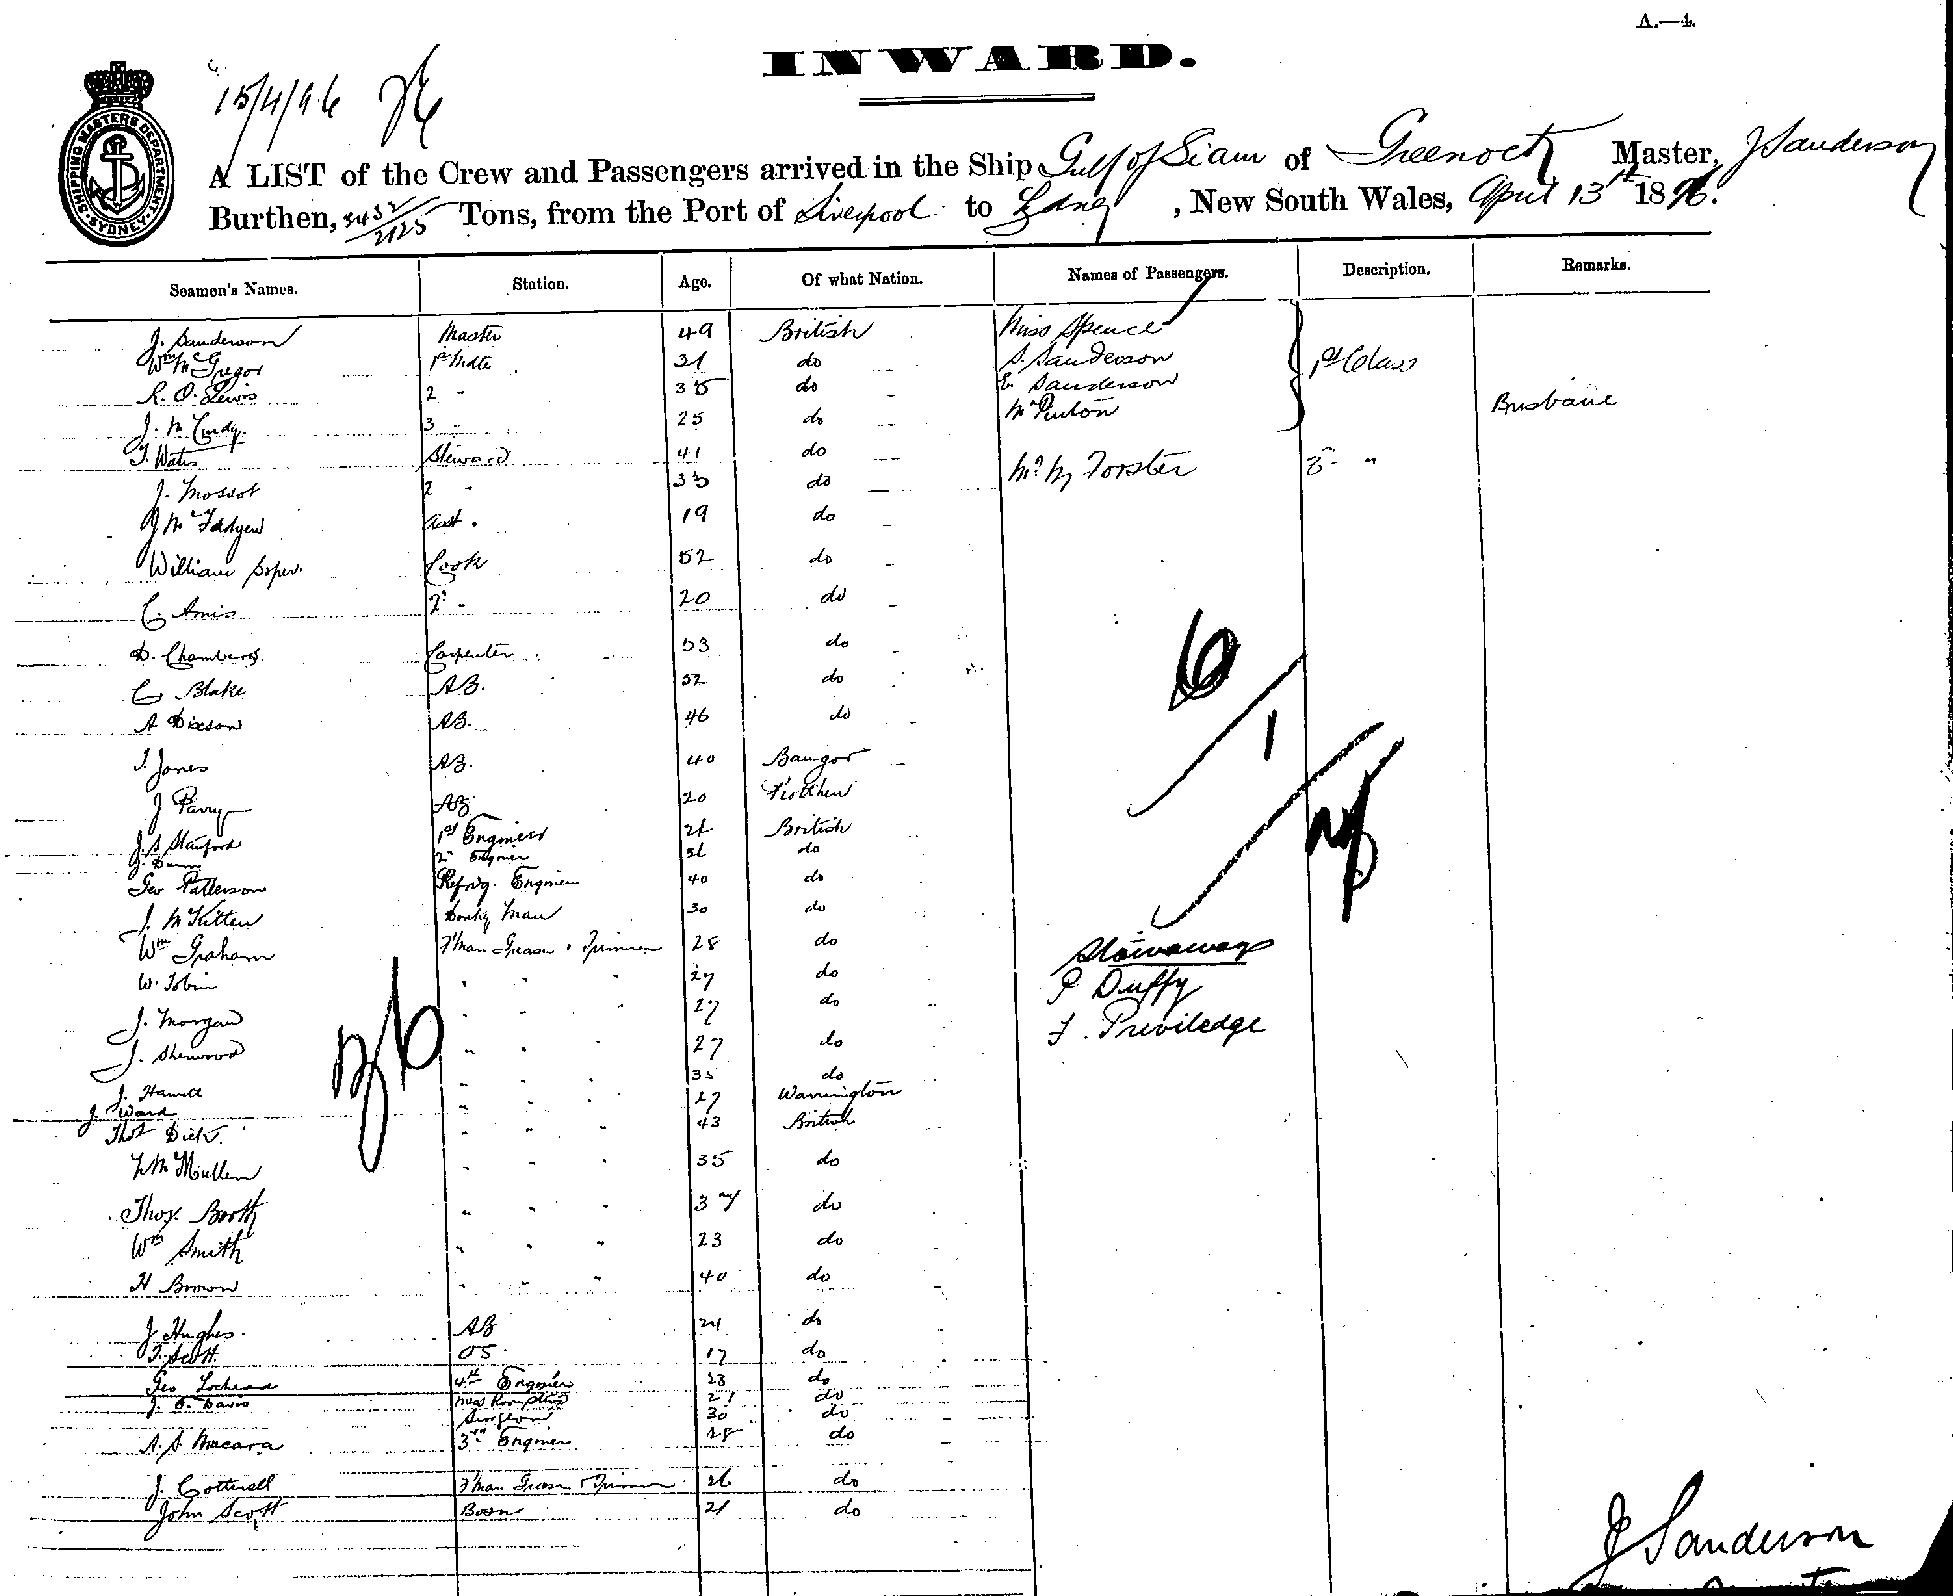 A.—4.
INWARD.
15/4/96
SHIPPING MASTERS DEPARTMENT SYDNEY
A LIST of the Crew and Passengers arrived in the Ship Gulf of Siam of Greenock Master, J Sanderson
Burthen, 3432/2125 Tons, from the Port of Liverpool to Sydney, New South Wales, April 13th 1896.
Seamen's Names. Station. Age. Of what Nation. Names of Passengers. Description. Remarks.
J. Sanderson Master 49 British Miss Spence
Wm McGregor 1st Mate 31 do S. Sanderson 1st Class
R. O. Lewis 2 " 35 do E. Sanderson
J. McCurdy 3 " 25 do Mr Pinton Brisbane
T. Watts Steward 41 do
J. Mossop 2 " 33 do Forster 3 "
J McFadyen Asst. 19 do
William Soper Cook 52 do
C Amis 2d " 20 do
D. Chambers Carpenter 53 do
C Blake AB. 52 do
A Dixson AB. 46 do
6
1
J. Jones AB. 40 Bangor
J Parry AB 20
J. S. Stanford 1st Engineer British
J. Dunn 2n Engineer do
Geo Patterson Refrig. Engineer 40 do
J. McKitten Donky Man 30 do
Wm Graham F'man Greaser & Trimmer 28 do Stowaways
W. Tobin " " " 27 do P Duffy
J. Morgan " " " 27 do F. Priviledge
J. Sherwood " " " 27 do
J. Hamill " " " 35 do
J. Ward " " " 27 Warrington
Thos Dick " " " 43 British
McMullen " " " 35 do
Thos. Booth " " " 37 do
Wm Smith " " " 23 do
H Brown " " " 40 do
J Hughes. AB 24 do
T. Scott OS 17 do
Geo Lochead 4th Engineer 23 do
J. E. Davis Mess Room Stwd 21 do
Surgeon 30 do
A. S. Macara 3rd Engineer 28 do
J. Cotterell F'man Greaser & Trimmer 26 do
John Scott Bosn 21 do
J Sanderson